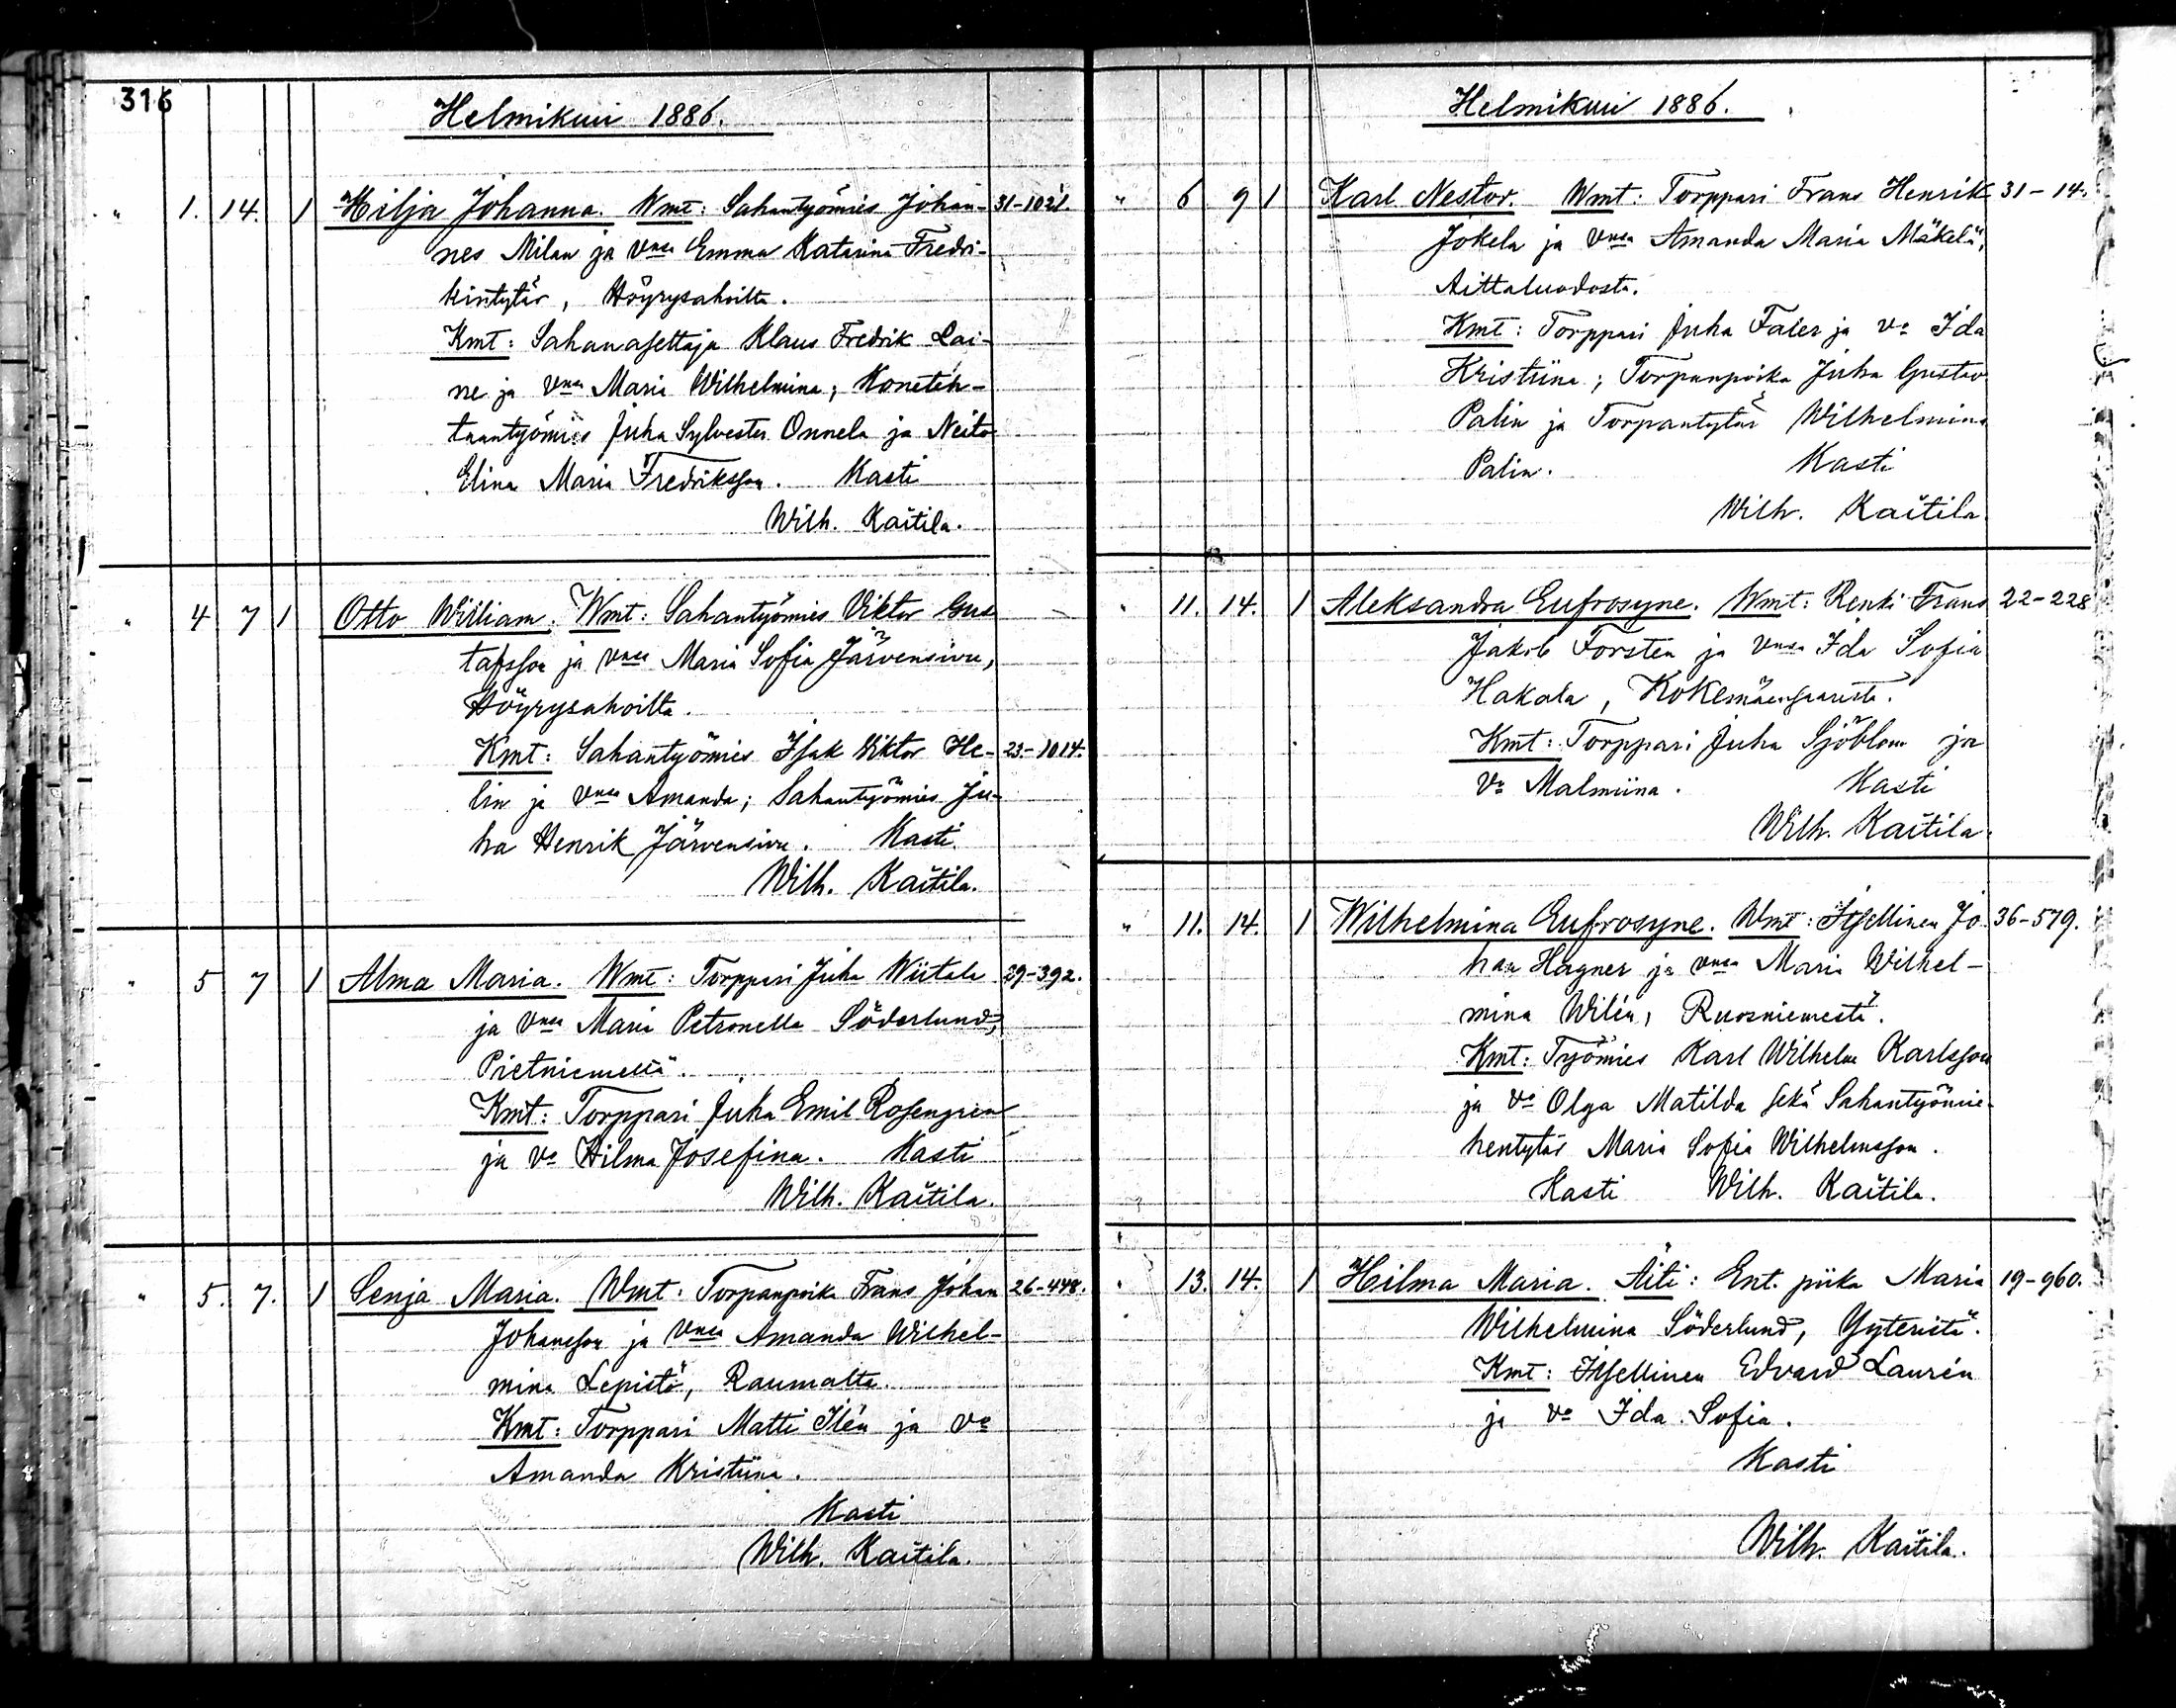 316
Helmikuu 1886.
" 1. 14. 1 Hilja Johanna. Wmt: Sahantyömies Johan- 31-1021.
nes Milan ja vmsa Emma Katarina Fredri-
kintytär, Höyrysahoilta.
Kmt: Sahanasettaja Klaus Fredrik Lai-
ne ja vmsa Maria Wilhelmina; Koneteh-
taantyömies Juha Sylvester Onnela ja Neito
Elina Maria Fredriksson. Kasti
Wilh. Kaitila.
" 4 7 1 Otto William. Wmt: Sahantyömies Viktor Gus
tafsson ja vmsa Maria Sofia Järvensivu,
Höyrysahoilta.
Kmt: Sahantyömies Isak Viktor He- 23-1014.
lin ja vmsa Amanda; Sahantyömies Ju-
ha Henrik Järvensivu. Kasti
Wilh. Kaitila.
" 5 7 1 Alma Maria. Wmt: Torppari Juha Wiitala 29-392.
ja vmsa Maria Petronella Söderlund,
Pietniemeltä.
Kmt: Torppari Juha Emil Rosengren
ja vo Hilma Josefina. Kasti
Wilh. Kaitila.
" 5. 7. 1 Senja Maria. Wmt. Torpanpoika Frans Johan 26-448.
Johansson ja vmsa Amanda Wilhel-
mina Lepistö, Raumalta.
Kmt: Torppari Matti Ilén ja vo
Amanda Kristiina.
Kasti
Wilh. Kaitila.
Helmikuu 1886.
" 6 9 1 Karl Nestor. Wmt: Torppari Frans Henrik 31-14.
Jokela ja vmsa Amanda Maria Mäkelä,
Aittaluodosta.
Kmt: Torppari Juha Faler ja vo Ida
Kristiina; Torpanpoika Juha Gustav
Palin ja Torpantytär Wilhelmina
Palin. Kasti
Wilh. Kaitila
" 11. 14. 1 Aleksandra Eufrosyne. Wmt: Renki Frans 22-228
Jakob Forsten ja vmsa Ida Sofia
Hakala, Kokemäensaarista.
Kmt: Torppari Juha Sjöblom ja
vo Malmiina. Kasti
Wilh. Kaitila.
" 11. 14. 1 Wilhelmina Eufrosyne. Wmt: Itsellinen Jo 36-579.
han Hagner ja vmsa Maria Wilhel-
mina Wilén, Ruosniemestä.
Kmt: Työmies Karl Wilhelm Karlsson
ja vo Olga Matilda sekä Sahantyömie-
hentytär Maria Sofia Wilhelmsson.
Kasti Wilh. Kaitila.
" 13. 14. 1 Hilma Maria. Äiti: Ent. piika Maria 19-960.
Wilhelmina Söderlund, Yyteristä.
Kmt: Itsellinen Edvard Laurén
ja vo Ida Sofia.
Kasti
Wilh. Kaitila.